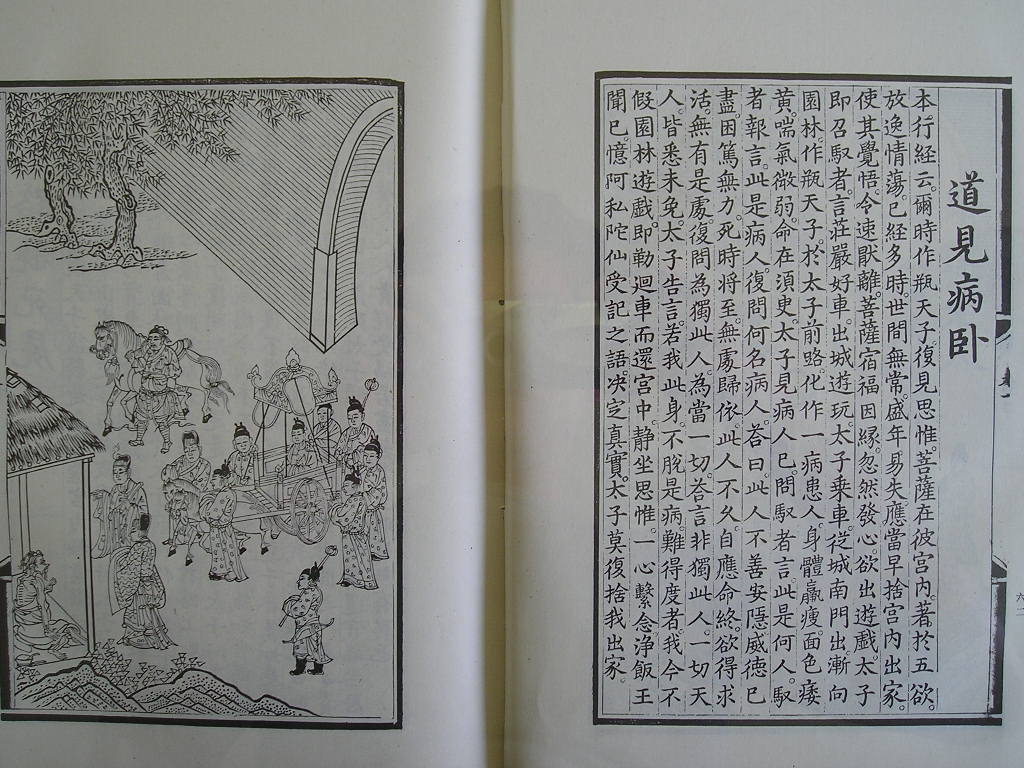 道見病卧
本行経云。爾時作瓶天子。復見思惟。菩薩在彼宮内。著於五欲。
放逸情蕩。已経多時世間無常。盛年易失應當早捨宮内出家。
使其覺悟。令速厭離。菩薩宿福因緣。忽然發心。欲出遊戲。太子
即召馭者。言莊嚴好車。出城遊玩。太子乗車。從城南門出。漸向
園林。作瓶天子。於太子前路。化作一病患人。身體羸瘦。面色痿
黄。喘氣微弱。命在須臾。太子見病人已。問馭者言。此是何人。馭
者報言。此是病人。復問何名病人。荅曰此人不善安隱。威德已
盡。困篤無力。死時將至。無處歸依。此人不久。自應命終。欲得求
活。無有是處。復問為獨此人。為當一切。荅言非獨此人。一切天
人。皆悉未免。太子告言。若我此身。不脫是病。難得度者。我今不
假園林遊戲。即勒迴車而還宮中。静坐思惟。一心繫念。浄飯王
聞已。憶阿私陀仙受記之語。决定真實。太子莫復捨我出家。